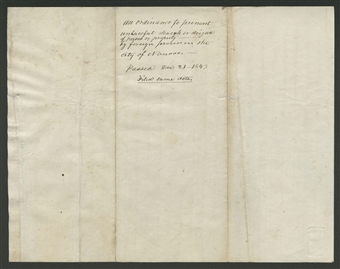 An Ordinance to prevent
unlawful search or seizure
of person or property
by foreign process in the
city of Nauvoo.
Passed Dec 21. 1843
Filed same date,